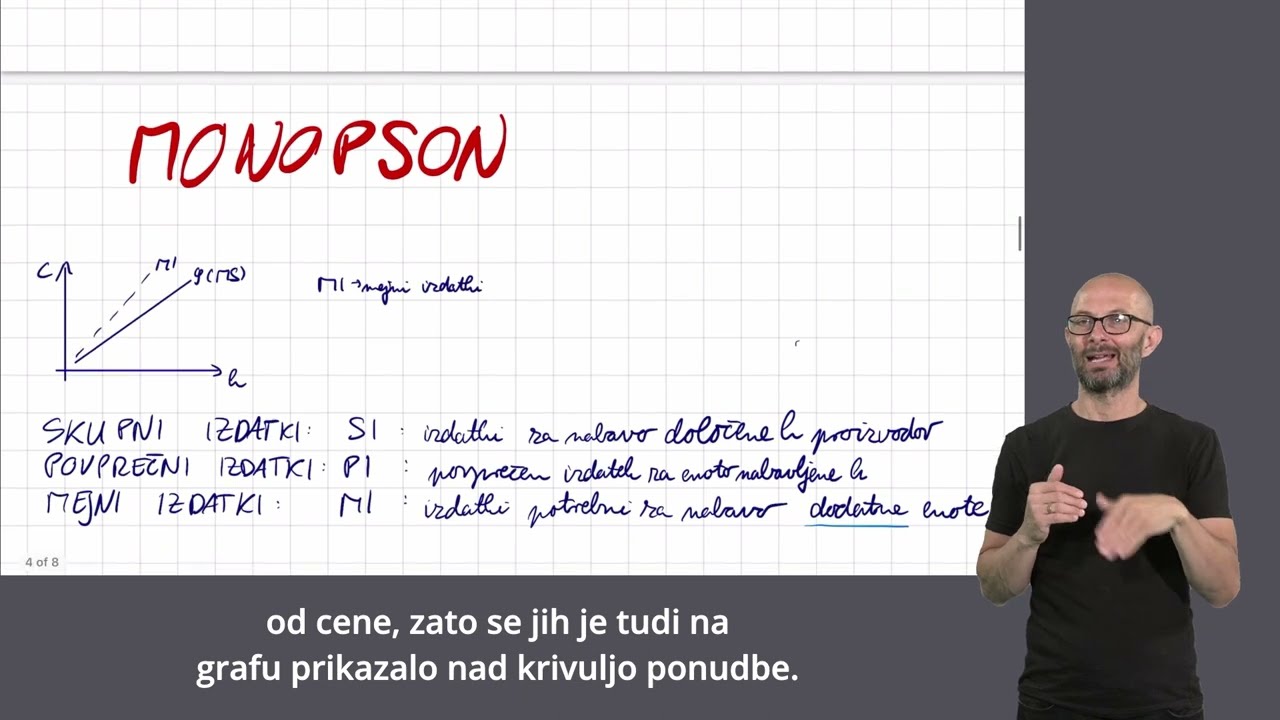 MONOPSON
C
MI
P(MS)
MI → mejni izdatki
k
SKUPNI IZDATKI: SI : izdatki za nabavo določene k proizvodov
POVPREČNI IZDATKI: PI : povprečen izdatek za enoto nabavljene k
MEJNI IZDATKI: MI : izdatki potrebni za nabavo dodatne enote
4 of 8
od cene, zato se jih je tudi na
grafu prikazalo nad krivuljo ponudbe.